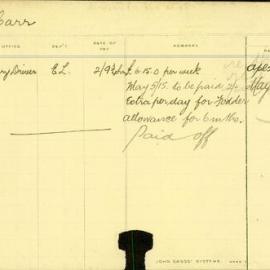 Carr
OFFICE DEP'T DATE OF PAY REMARKS
Driver E.L. £. 6-15-0 per week
May 5/15. to be paid
Extra per day for Fodder
allowance for 6 mths.
Paid off
May
JOHN SANDS' SYSTEMS.